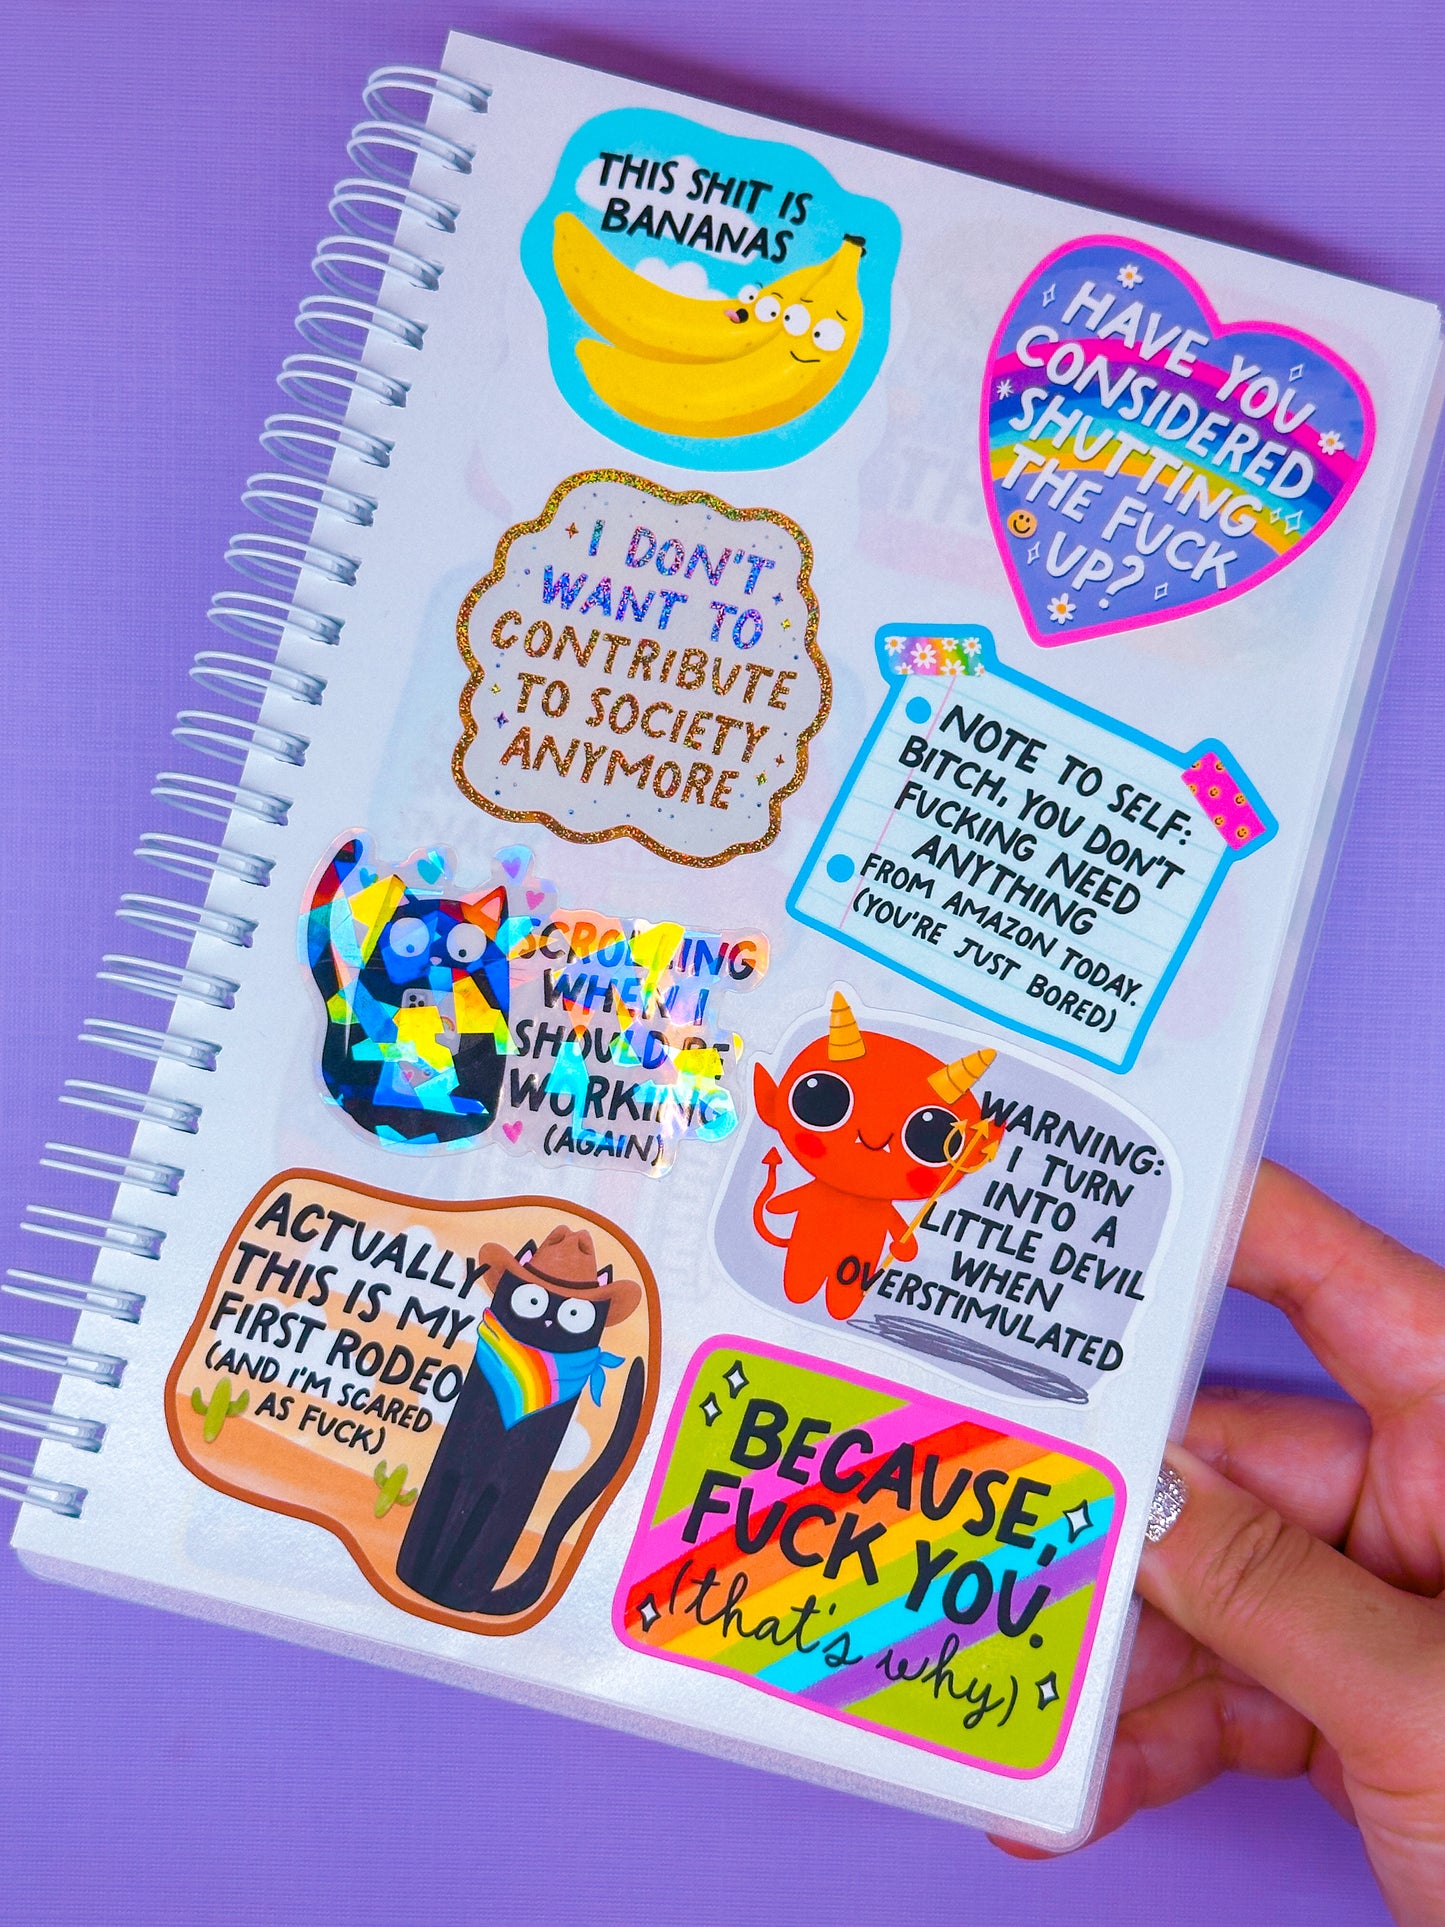 THIS SHIT IS
BANANAS
HAVE YOU
CONSIDERED
SHUTTING
THE FUCK
UP?
I DON'T
WANT TO
CONTRIBUTE
TO SOCIETY
ANYMORE
NOTE TO SELF:
BITCH, YOU DON'T
FUCKING NEED
ANYTHING
FROM AMAZON TODAY.
(YOU'RE JUST BORED)
SCROLLING
WHEN I
SHOULD BE
WORKING
(AGAIN)
WARNING:
I TURN
INTO A
LITTLE DEVIL
WHEN
OVERSTIMULATED
ACTUALLY
THIS IS MY
FIRST RODEO
(AND I'M SCARED
AS FUCK)
BECAUSE,
FUCK YOU.
(that's why)